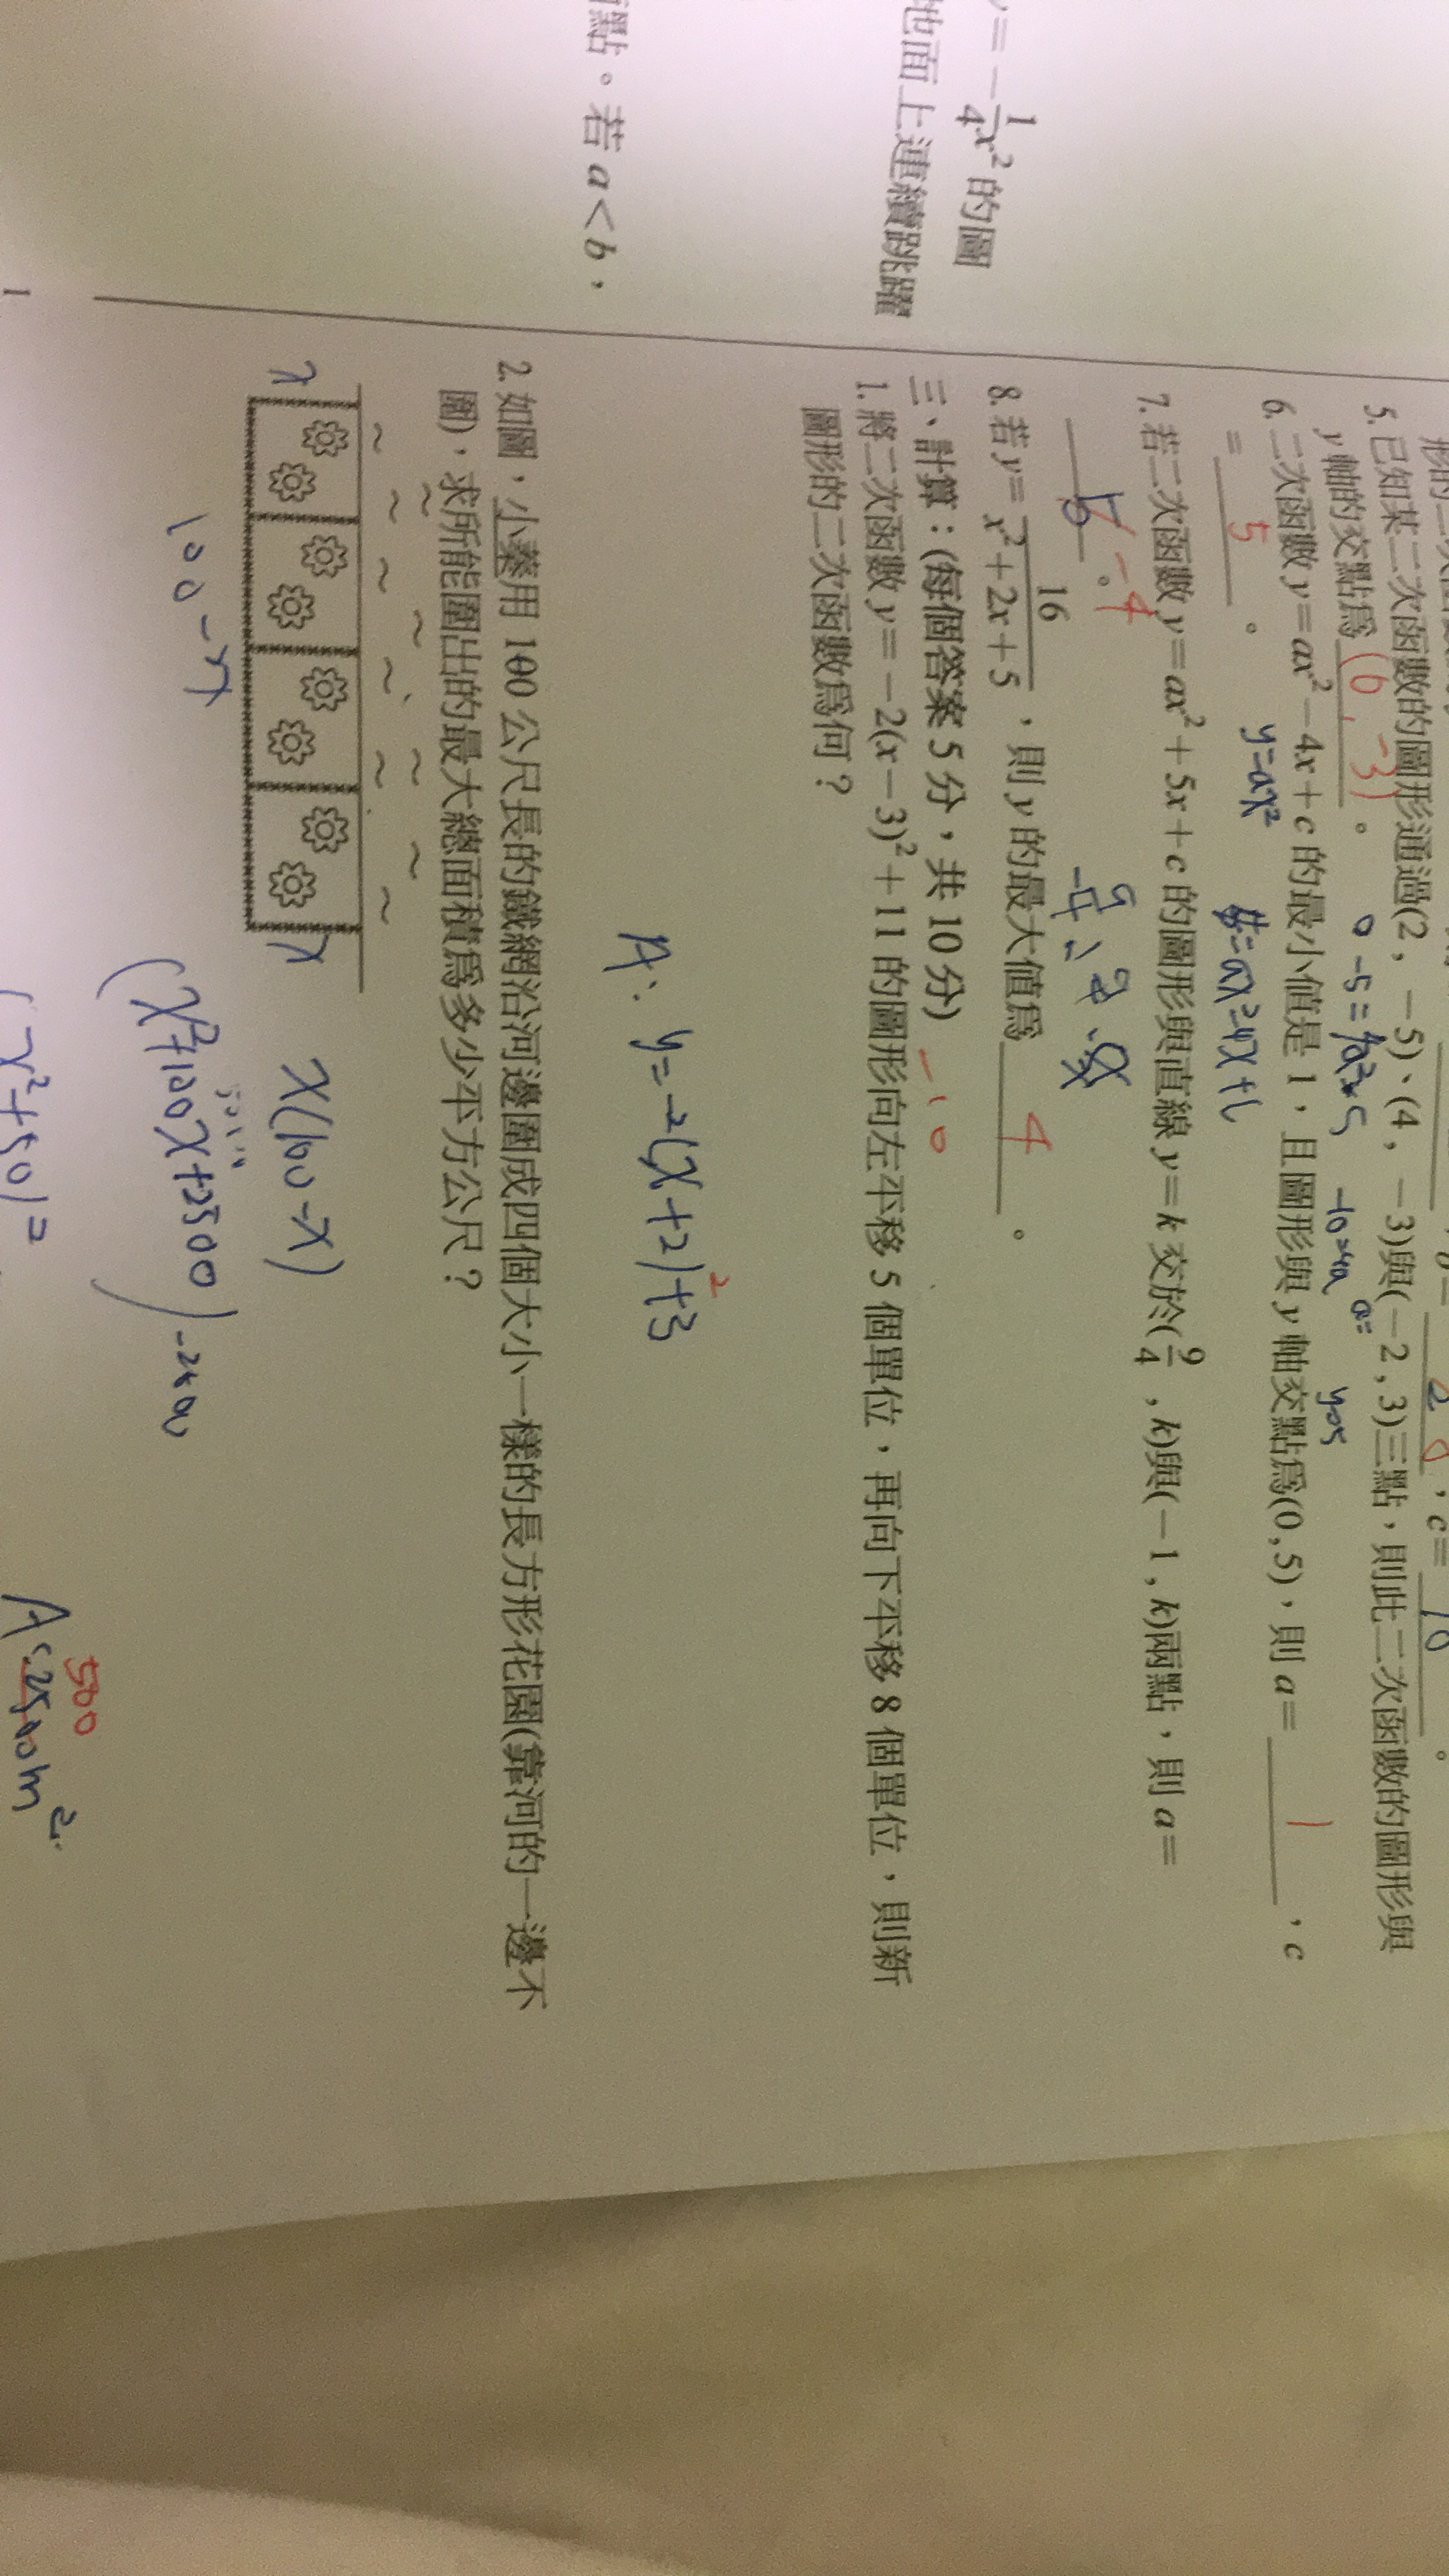 y=-1/4x²的圖
地面上連續跳躍
點。若a<b,
5. 已知某二次函數的圖形通過(2, -5)、(4, -3)與(-2, 3)三點,則此二次函數的圖形與
y軸的交點為(6, -3)。
6. 二次函數y=ax²-4x+c的最小值是1,且圖形與y軸交點為(0, 5),則a=1,c
=5。
y=ax²
y=5
7. 若二次函數y=ax²+5x+c的圖形與直線y=k交於(9/4, k)與(-1, k)兩點,則a=
-4。
8. 若y=16/(x²+2x+5),則y的最大值為4。
三、計算:(每個答案5分,共10分)
-10
1. 將二次函數y=-2(x-3)²+11的圖形向左平移5個單位,再向下平移8個單位,則新
圖形的二次函數為何?
A: y=-2(x+2)²+3
2. 如圖,小蓁用100公尺長的鐵網沿河邊圍成四個大小一樣的長方形花圃(靠河的一邊不
圍),求所能圍出的最大總面積為多少平方公尺?
x
x
100-x
x(100-x)
(x²+100x+2500)-2500
500
A: 2500m²
1